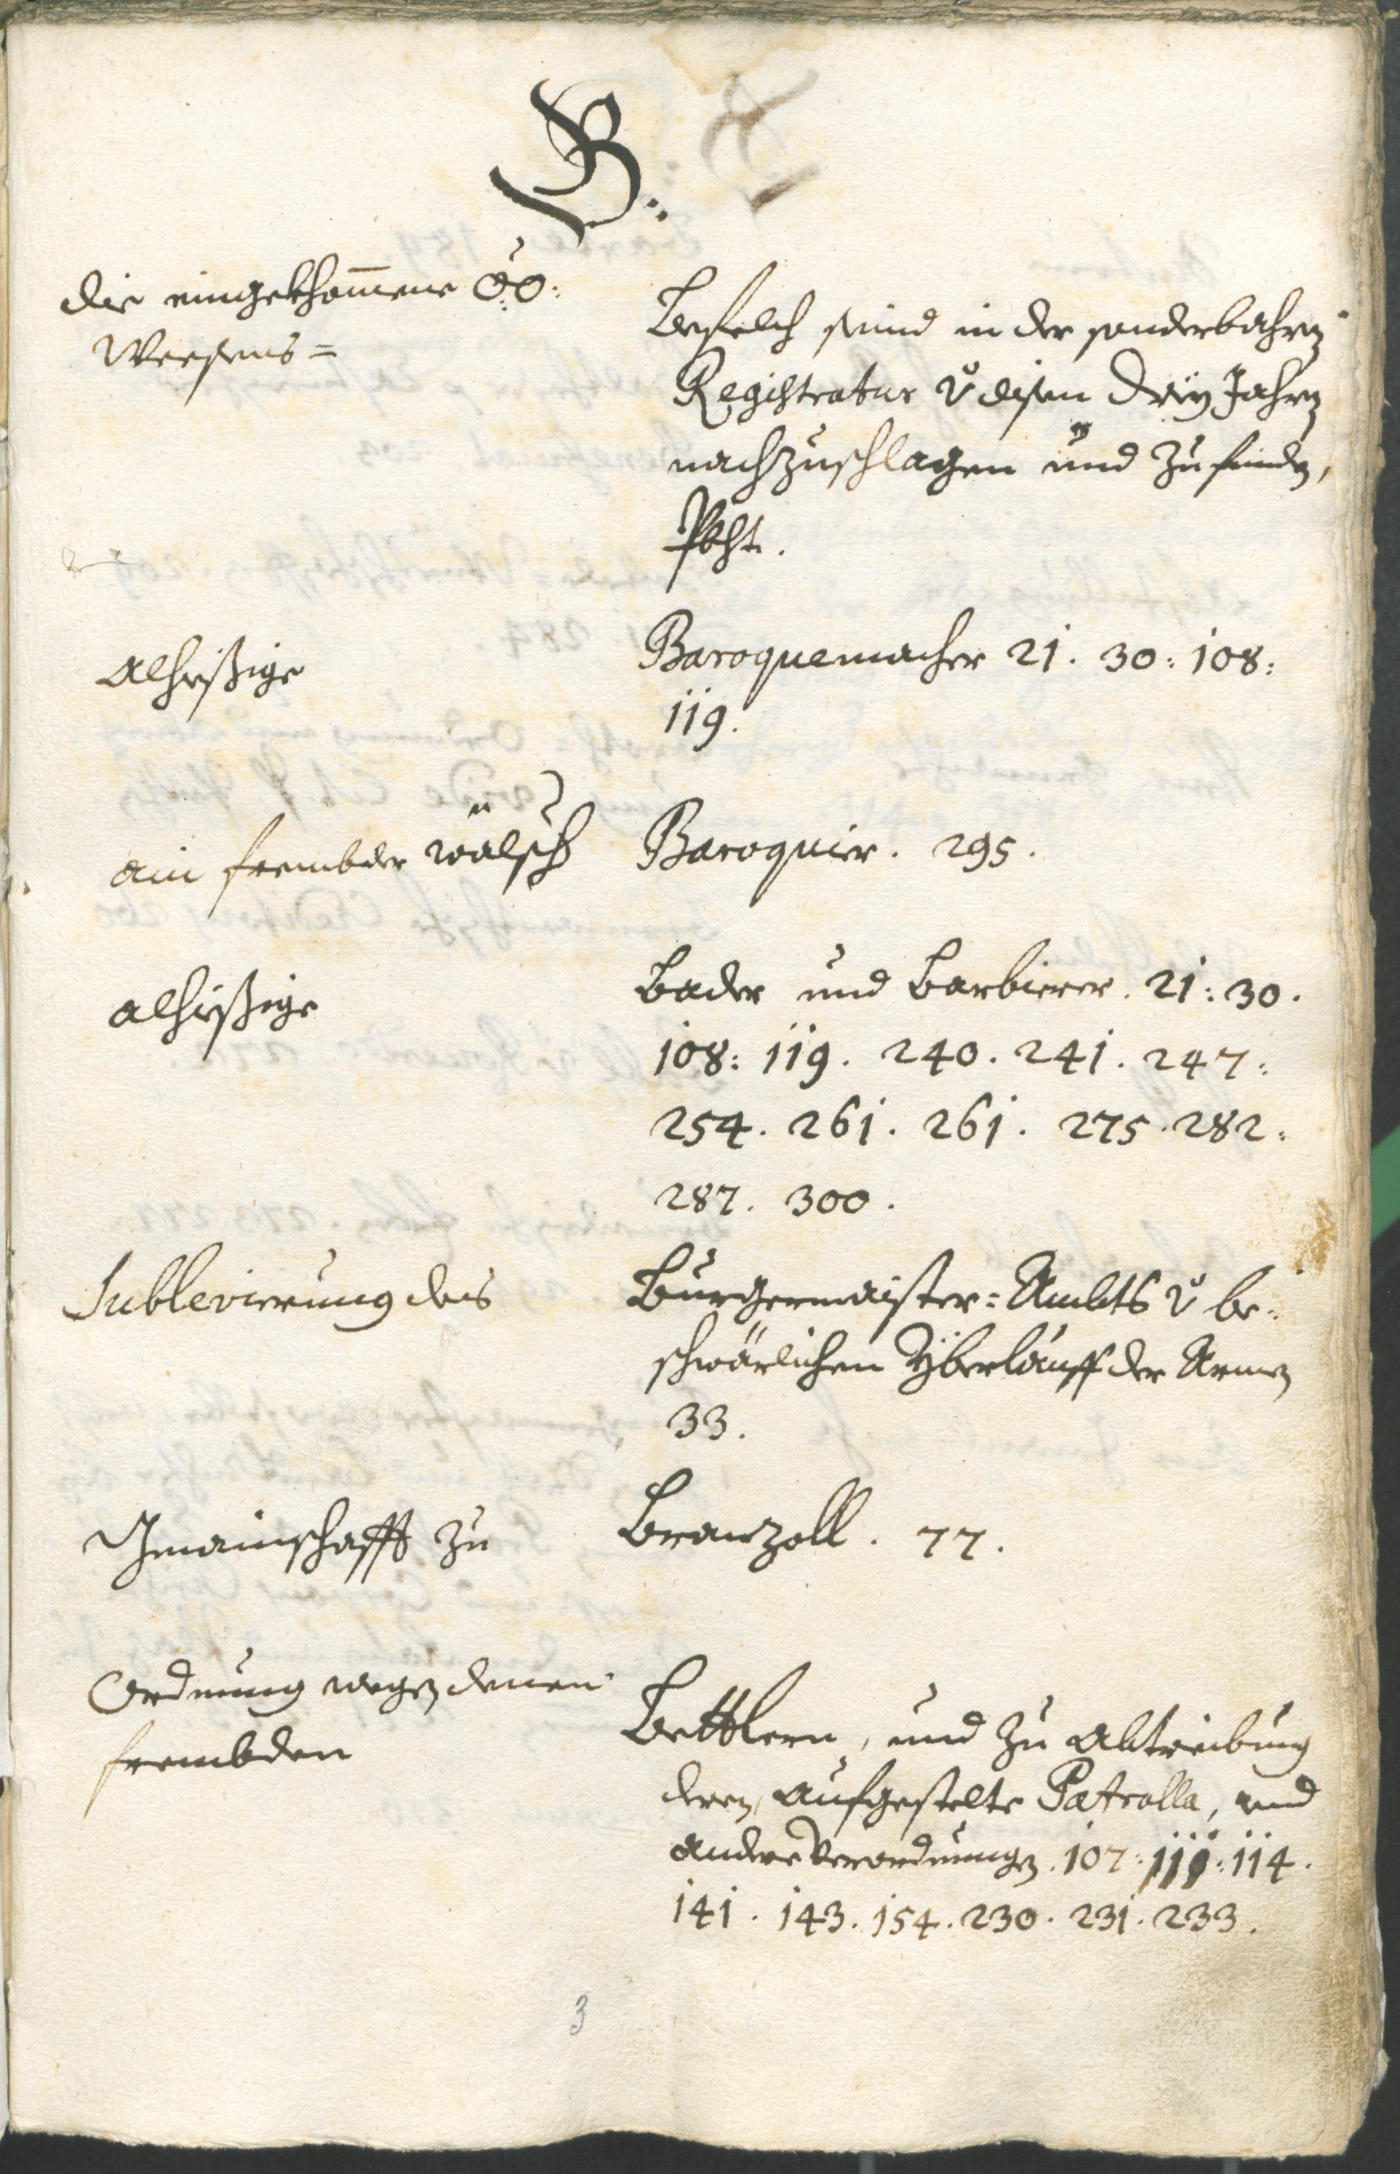 B.
die eingekhom̄ene OÖ:
Weesens=
Befelch seind in der sonderbahren
Registratur v disen drey Jahren
nachzuschlagen und zu finden,
alhießige
Baroquemacher 21. 30: 108:
119.
ain frembder wälsch
Baroquier. 295.
alhießige
Bader und Barbierer. 21: 30.
108: 119. 240. 241. 247:
254. 261. 261. 275. 282:
287. 300.
Sublevierung des
Burgermaister=Ambts v be=
schwärlichen Yberlauff der Armen
33.
Gmainschafft zu
Branzoll. 77.
Ordnung wegen denen
frembden
Bettlern, und zu Abtreibung
deren, aufgestelte Patrolla, und
andere Verordnungen. 107: 111: 114.
141. 143. 154. 230. 231. 233.
3